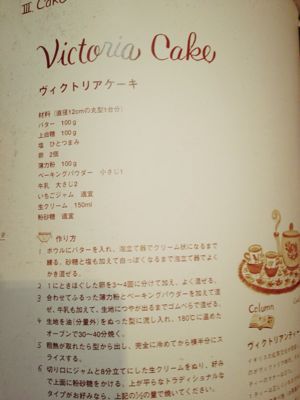 III. Cake
Victoria Cake
ヴィクトリアケーキ
材料（直径12cmの丸型1台分）
バター　100g
上白糖　100g
塩　ひとつまみ
卵　2個
薄力粉　100g
ベーキングパウダー　小さじ1
牛乳　大さじ2
いちごジャム　適宜
生クリーム　150ml
粉砂糖　適宜
作り方
1 ボウルにバターを入れ、泡立て器でクリーム状になるまで
練る。砂糖と塩も加えて白っぽくなるまで泡立て器でよく
かき混ぜる。
2 1にときほぐした卵を3〜4回に分けて加え、よく混ぜる。
3 合わせてふるった薄力粉とベーキングパウダーを加えて混
ぜ、牛乳も加えて、生地につやが出るまでゴムベラで混ぜる。
4 生地を油（分量外）をぬった型に流し入れ、180℃に温めた
オーブンで30〜40分焼く。
5 粗熱が取れたら型から出し、完全に冷めてから横半分にス
ライスする。
6 切り口にジャムと8分立てにした生クリームをぬり、好み
で上面に粉砂糖をかける。上が平らなトラディショナルな
タイプがお好みなら、上記の
量で焼いてください。
Column
ヴィクトリアンティー